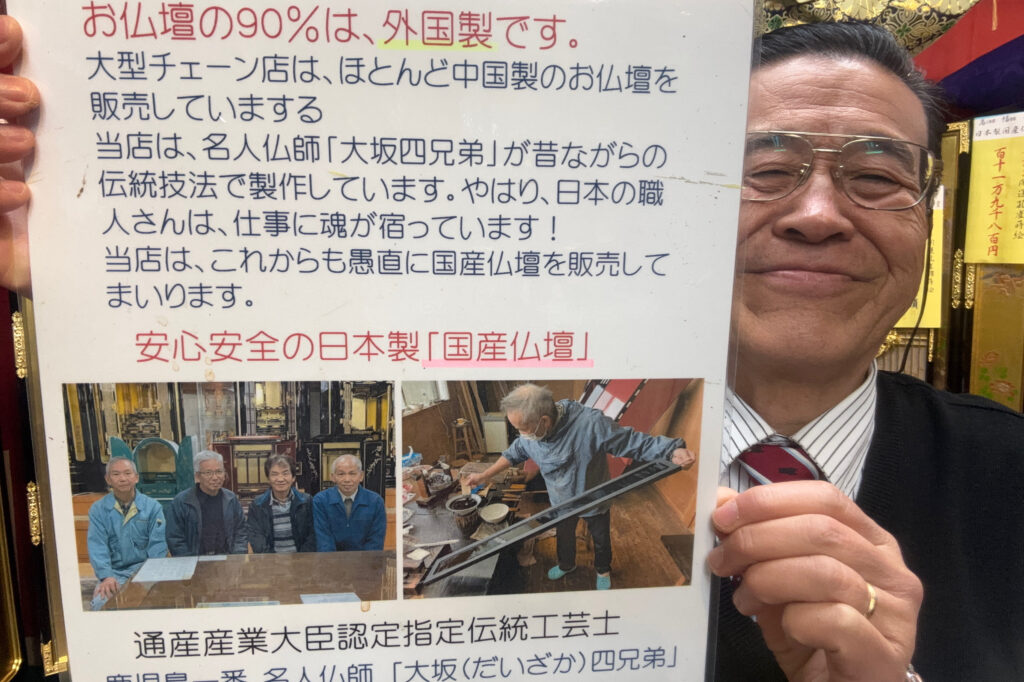 お仏壇の90%は、外国製です。
大型チェーン店は、ほとんど中国製のお仏壇を
販売していまする
当店は、名人仏師「大坂四兄弟」が昔ながらの
伝統技法で製作しています。やはり、日本の職
人さんは、仕事に魂が宿っています！
当店は、これからも愚直に国産仏壇を販売して
まいります。
安心安全の日本製「国産仏壇」
通産産業大臣認定指定伝統工芸士
鹿児島一番 名人仏師 「大坂(だいざか)四兄弟」
日本製国産
百十一万九千八百円